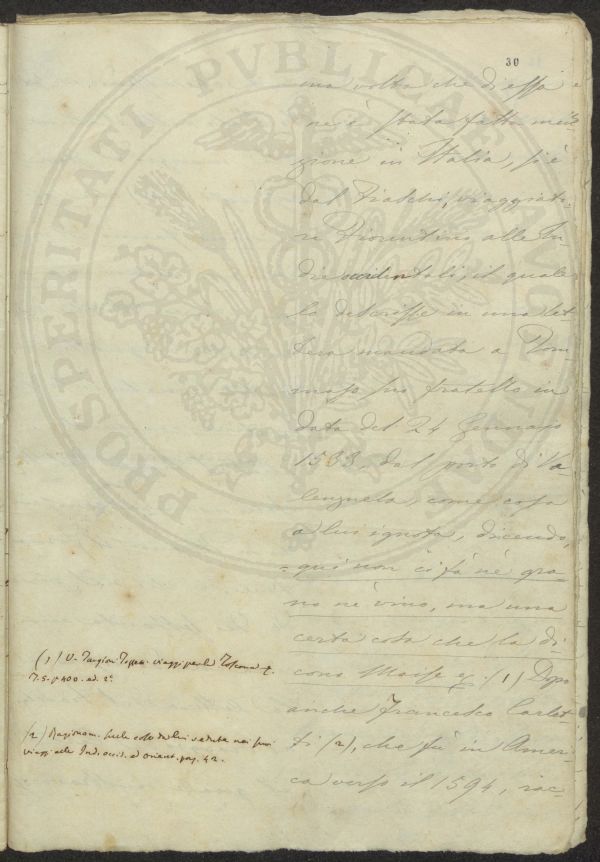 30
ma volta che di essa
ne è stata fatta men-
zione in Italia, si è
dal Fiaschi, viaggiato-
re Fiorentino alle In
die occidentali, il quale
la descrisse in una let-
tera mandata a Tom
maso suo fratello in
data del 24 Gennajo
1533, dal porto di Va-
lenzuela, come cosa
a lui ignota, dicendo,
= qui non ci fà nè gra-
no nè vino, ma una
certa cosa che la di-
cono Maise &. (1) Dopo
anche Francesco Carlet-
ti (2), che fù in Ameri-
ca verso il 1594, rac-
(1) V. Targion Tozzett. viaggi per la Toscana &.
T. 5. p. 400. ed. 2.ª
(2) Ragionam. sulle cose da lui vedute nei suoi
viaggi alle Ind. occid. ed orient. pag. 42.
PROSPERITATI PVBLICAE AVGENDAE